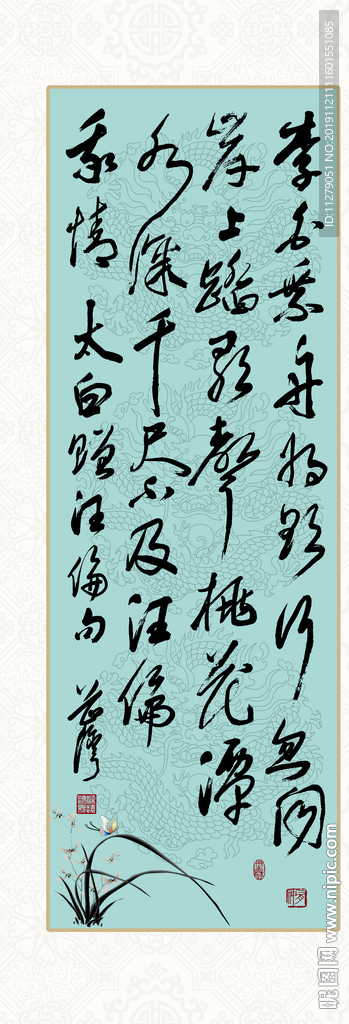 李白乘舟將欲行忽聞
岸上踏歌聲桃花潭
水深千尺不及汪倫
我情 太白贈汪倫句
ID:11279051 NO:20191121111601551085
昵图网 www.nipic.com